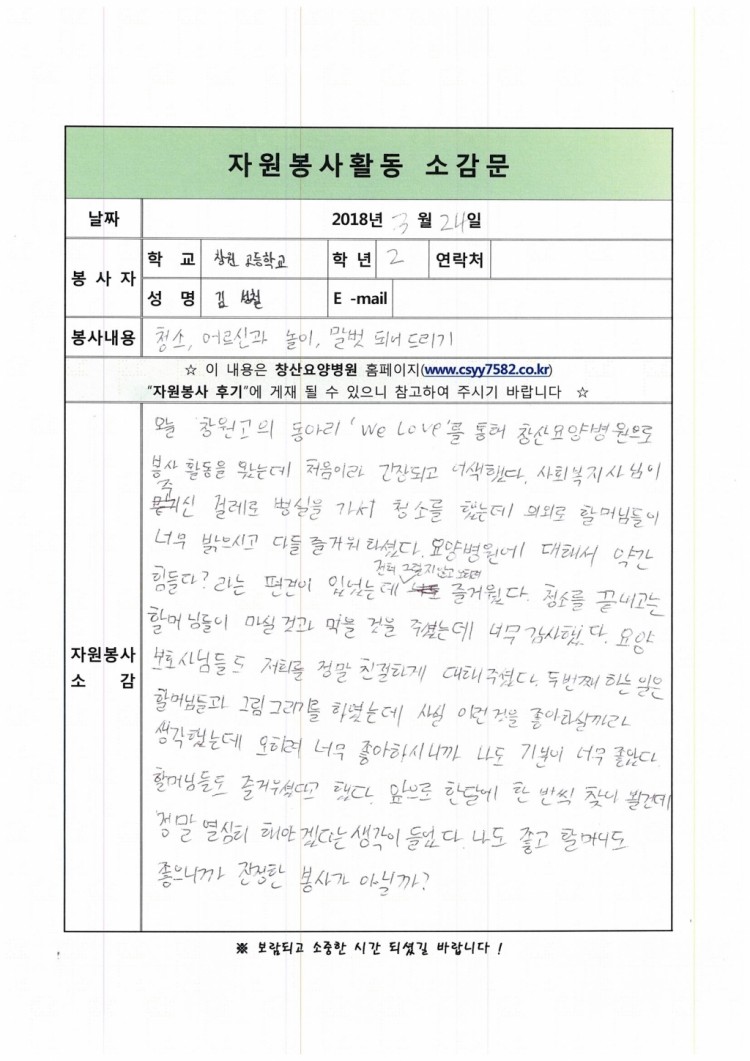 자원봉사활동 소감문
날짜 2018년 3월 24일
봉사자 학교 창원 고등학교 학년 2 연락처
성명 김 E-mail
봉사내용 청소, 어르신과 놀이, 말벗 되어 드리기
☆ 이 내용은 창산요양병원 홈페이지(www.csyy7582.co.kr)
"자원봉사 후기"에 게재 될 수 있으니 참고하여 주시기 바랍니다 ☆
자원봉사
소 감
오늘 창원고의 동아리 'We Love'를 통해 창산요양병원으로
봉사 활동을 왔는데 처음이라 긴장되고 어색했다. 사회복지사님이
주신 걸레로 병실을 가서 청소를 했는데 의외로 할머님들이
너무 밝으시고 다들 즐거워 하셨다. 요양병원에 대해서 약간
힘들다? 라는 편견이 있었는데 전혀 그렇지 않고 즐거웠다. 청소를 끝내고는
할머님들이 마실 것과 먹을 것을 주셨는데 너무 감사했다. 요양
보호사님들도 저희를 정말 친절하게 대해 주셨다. 두번째 하는 일은
할머님들과 그림 그리기를 하였는데 사실 이런 것을 좋아하실까라
생각했는데 오히려 너무 좋아하시니까 나도 기분이 너무 좋았다.
할머님들도 즐거우셨다고 했다. 앞으로 한달에 한 번씩 찾아 뵐건데
정말 열심히 해야 겠다는 생각이 들었다. 나도 좋고 할머니도
좋으니까 진정한 봉사가 아닐까?
※ 보람되고 소중한 시간 되셨길 바랍니다 !